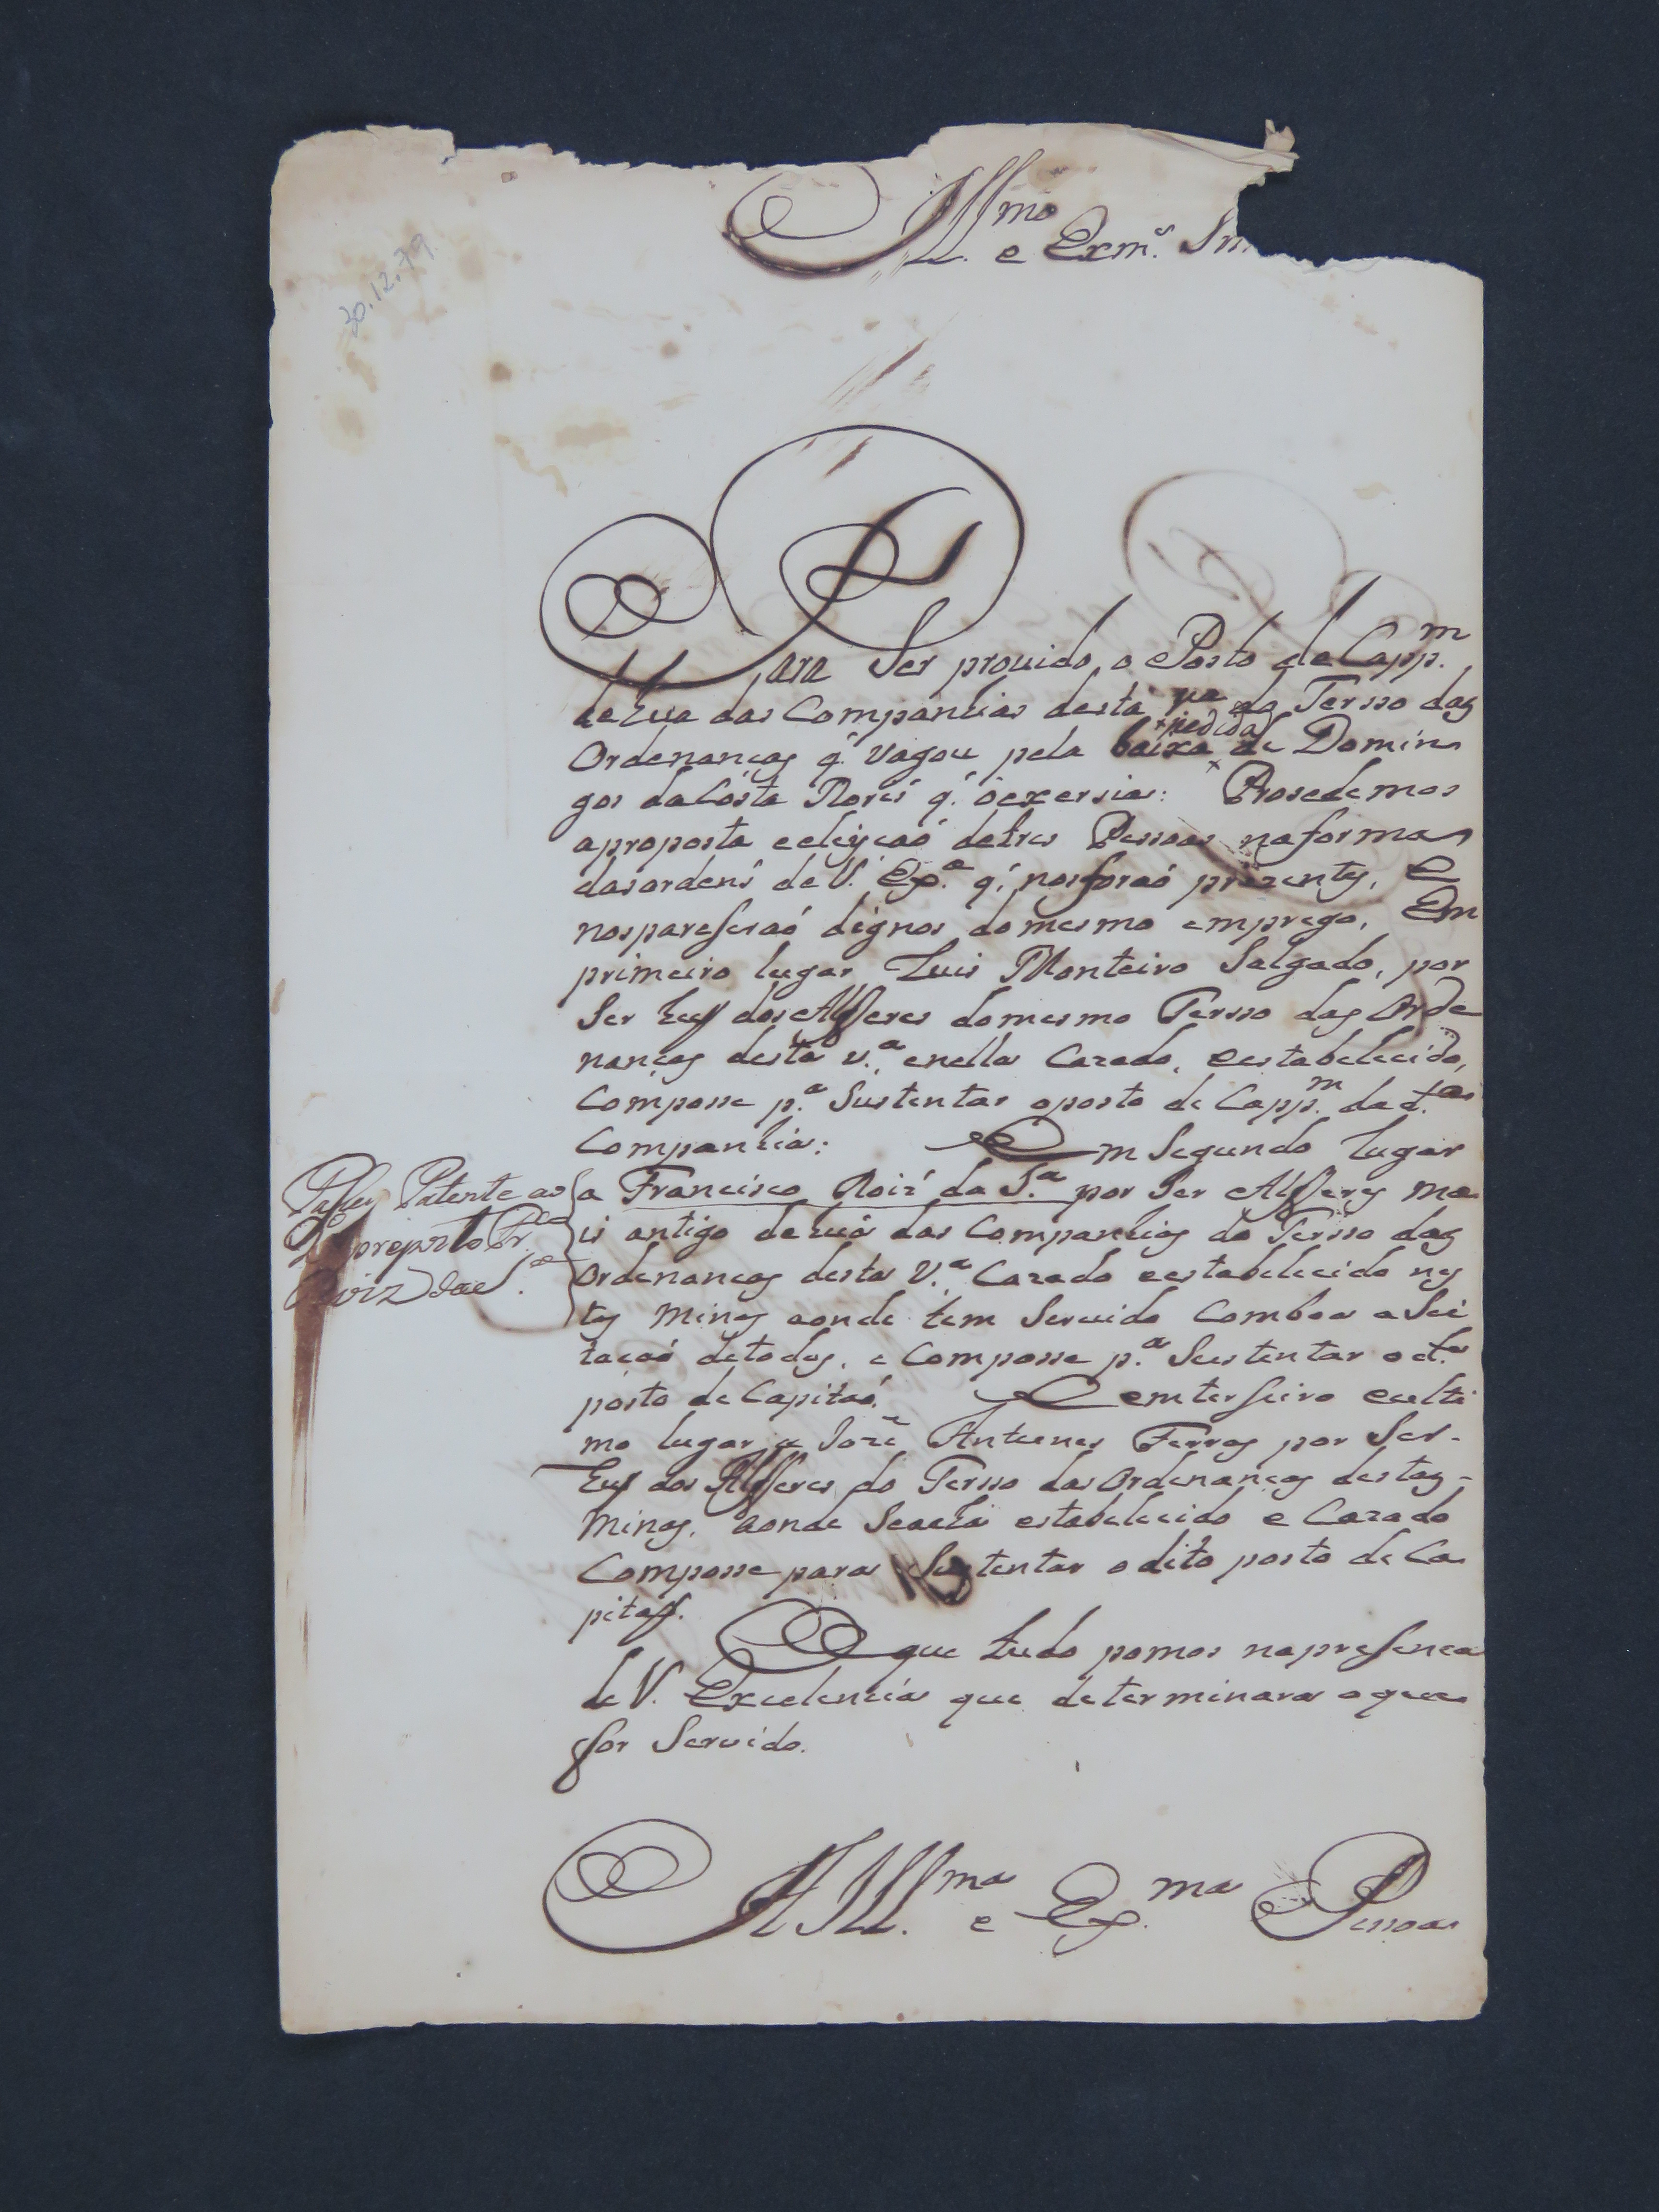 Ill.mo e Exm.o Snr
30.12.79
Para Ser prouido o Posto de Capp.m
de hua das Companhias desta v.a do Tersso das
Ordenanças q. vagou pela baixa pedida de Domin
gos da Costa q. o exersia: Prosedemos
aproposta eeleyçaó detres Pessoas naforma
das ordens de V. Ex.a q. nosforaó prezentes, e
nosparesseraó dignos domesmo emprego, Em
primeiro lugar Luis Monteiro Salgado, por
Ser hum dos Alferes domesmo Tersso das Orde
nanças desta v.a, enella Cazado, eestabelecido,
Composse p.a Sustentar oposto de Capp.m da d.ta
Companhia: Em Segundo lugar
a Francisco Roiz da S.a por Ser Alferes ma
is antigo de huá das Companhias do Tersso das
Ordenanças desta V.a Cazado eestabelecido nes
tas Minas aonde tem Seruido Comboa aSei
taçaó detodos, e Composse p.a Sustentar o d.to
posto de Capitaó. E emterseiro eulti
mo lugar a Jozé Antunes Ferras por Ser
hum dos Alferes do Tersso das Ordenanças destas
Minas, aonde Seacha estabelecido e Cazado
Composse para Sustentar o dito posto de Ca
pitam.
O que tudo pomos napresença
de V. Excelencia que determinara oque
for Seruido.
Passey Patente ao
proposto Fr.co
Roiz da S.a
A Ill.ma e Ex.ma Pessoa